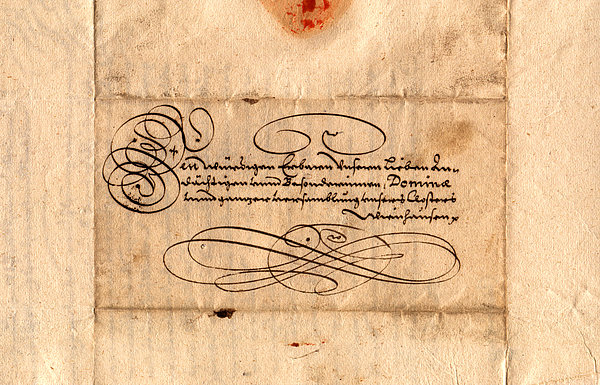 Den würdigen Erbarn Unsern Lieben An-
dächtigen unnd Besonderinnen, Dominæ
unnd ganzer versamblung unsers Closters
Wienhausen